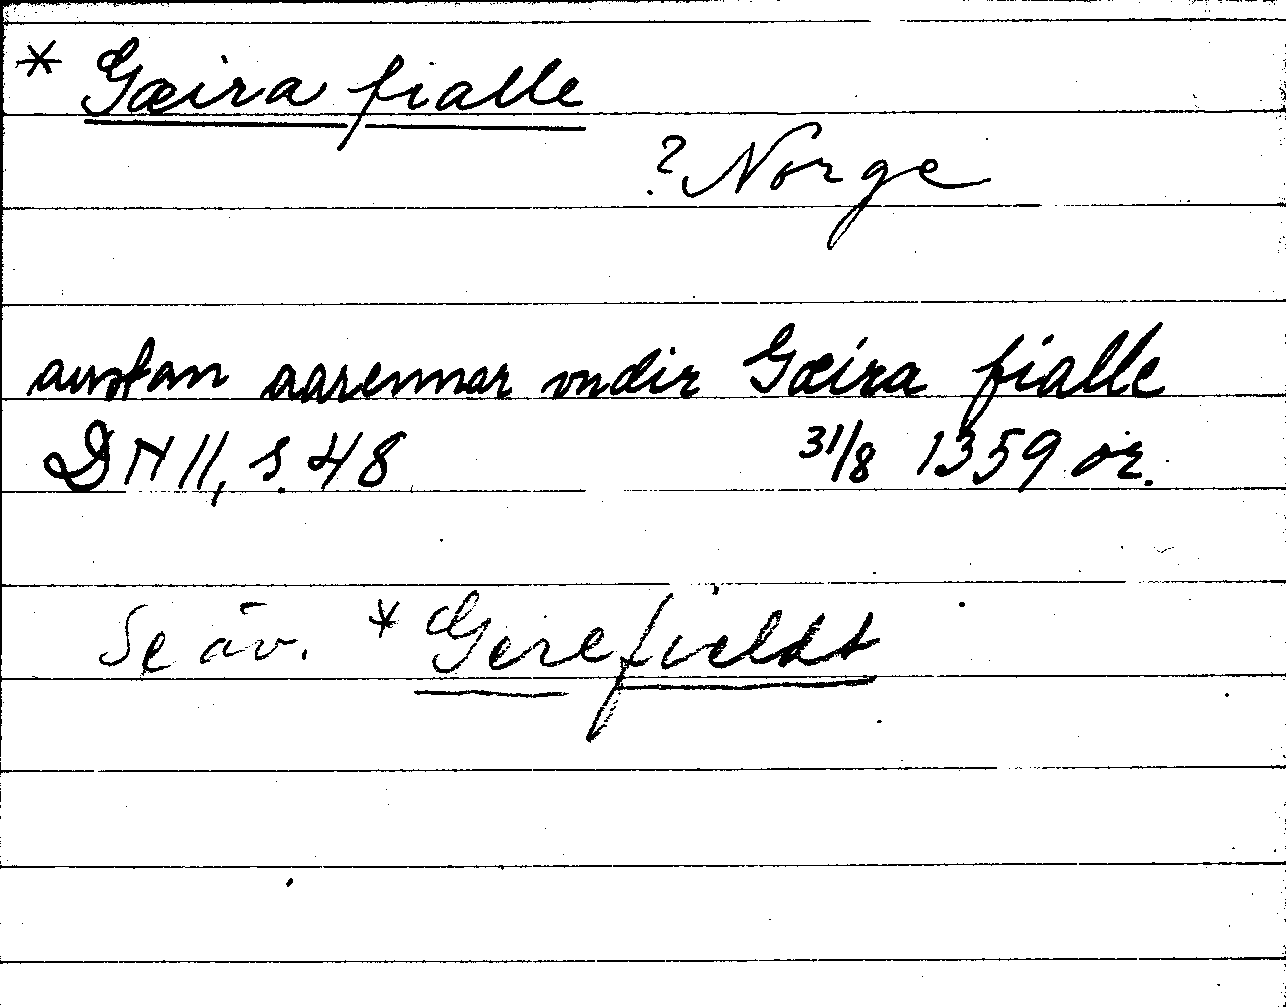 * Gæira fialle
? Norge
austan aarennar vndir Gæira fialle
DN II, s. 48 31/8 1359 or.
Se äv. * Gerefieldt